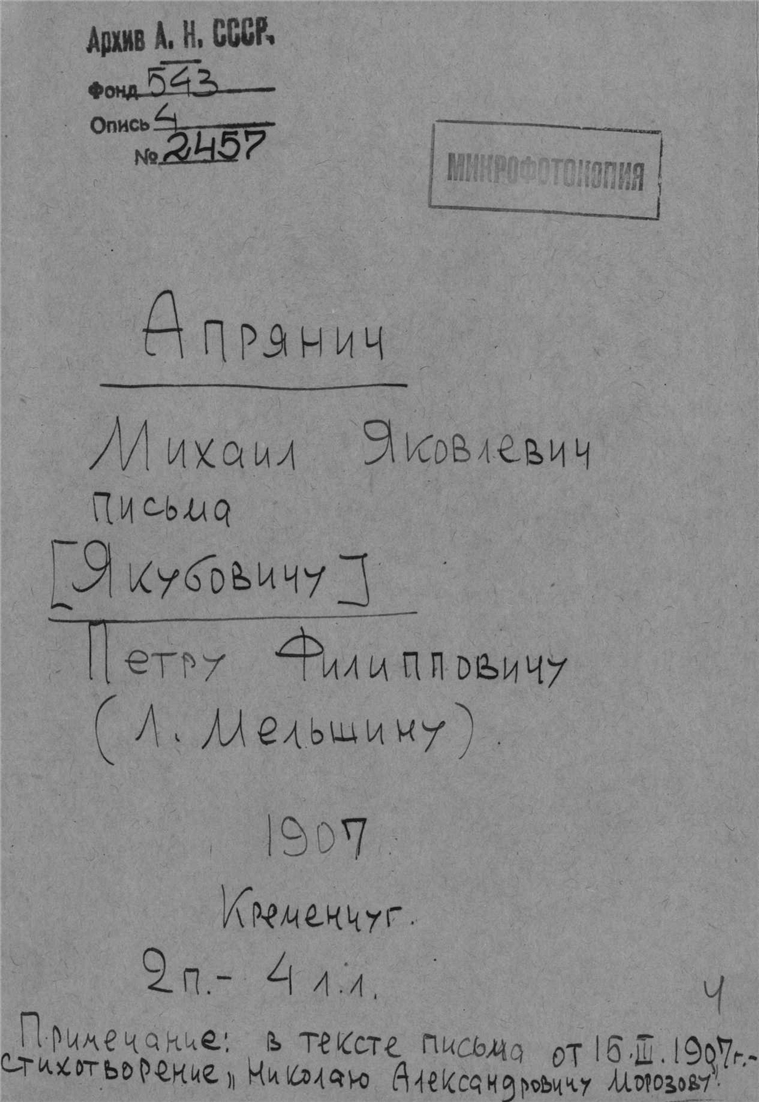 Архив А. Н. СССР.
Фонд 543
Опись 4
№ 2457
МИКРОФОТОКОПИЯ
Апрянич
Михаил Яковлевич
письма
[Якубовичу]
Петру Филипповичу
(Л. Мельшину).
1907
Кременчуг.
2 п. - 4 л.л.
4
Примечание: в тексте письма от 16.III.1907г.-
стихотворение „Николаю Александровичу Морозову".